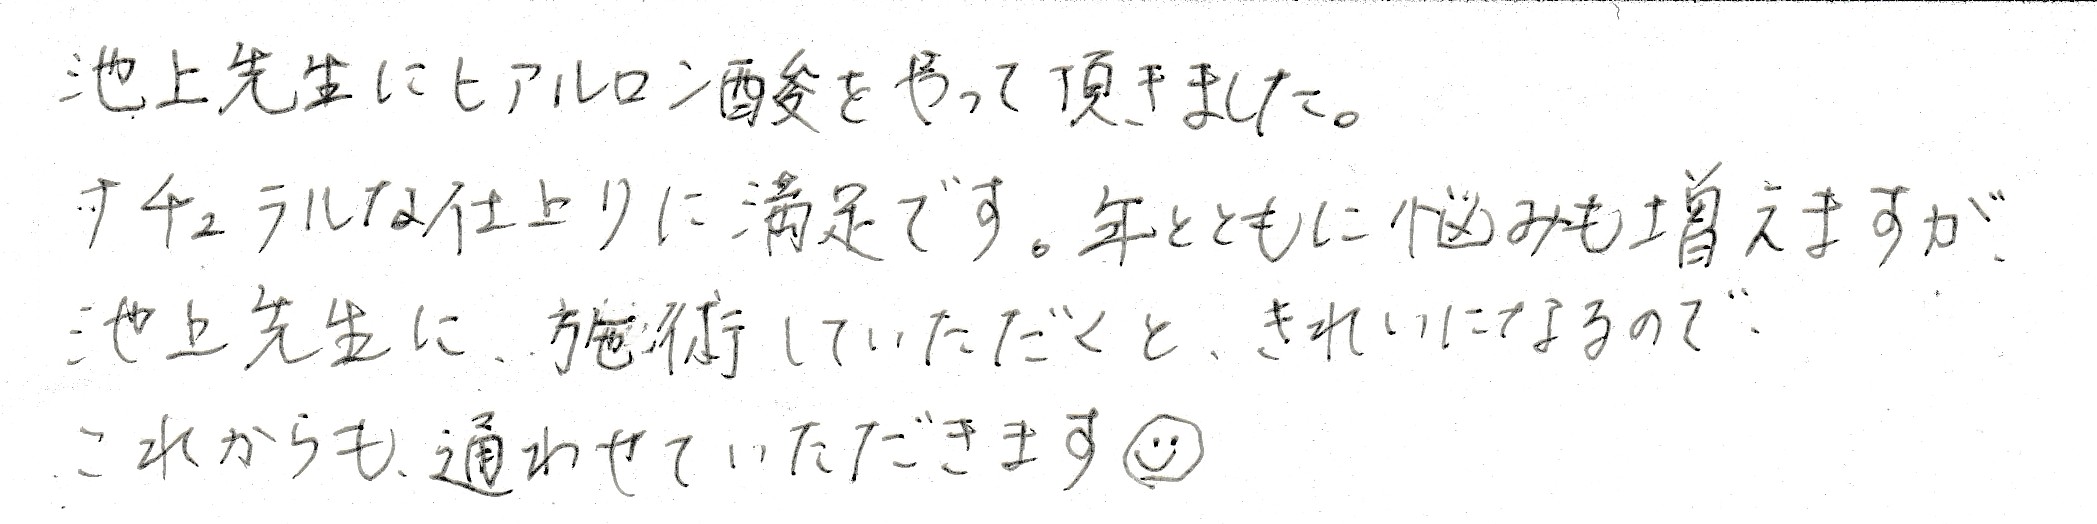 池上先生にヒアルロン酸をやって頂きました。
ナチュラルな仕上りに満足です。年とともに悩みも増えますが、
池上先生に、施術していただくと、きれいになるので、
これからも、通わせていただきます☺